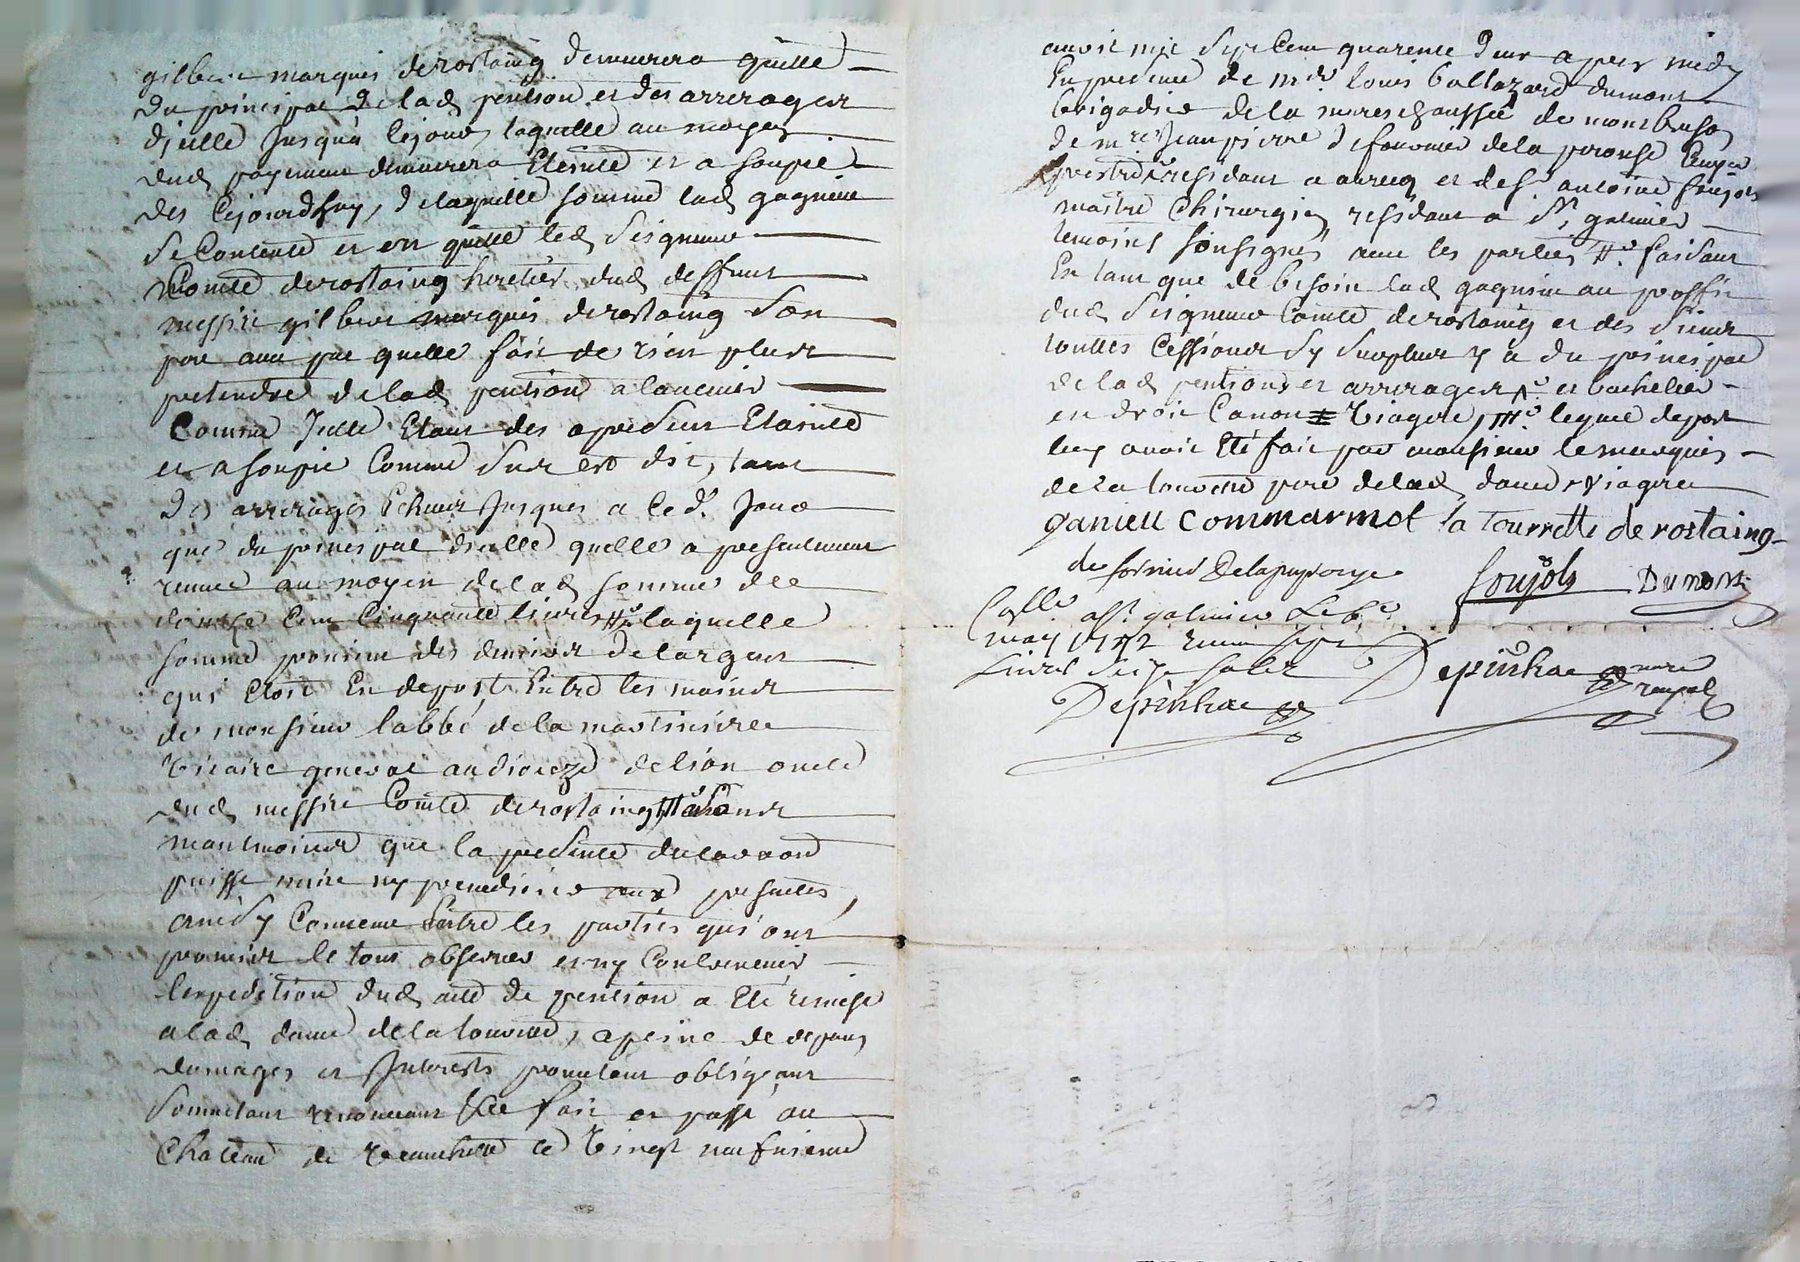 gilbert marquis derostaing demeurera quitte
du principal de lad pention et des arrerages
dicelle jusqua cejour, laquelle au moyen
dud payement demeurera Eteinte et a soupie
des cejourdhuy, de laquelle somme lad
se Contente et en quitte led Seigneur
Comte derostaing heritier dud deffunt
messire gilbert marquis derostaing son
pere avec pac quelle fait de rien plus
pretendre de lad pention a lavenir
Comme Icelle Etant des a present Eteinte
et asoupie Comme dus est dit, tant
des arrerages Echeus jusques a ce d. jour
que du principal dicelle quelle a presentement
receue au moyen de lad somme de
cent Cinquante livres laquelle
somme provient des deniers de largent
qui etoit En depost Entre les mains
de monsieur labbé de la mastinire
vicaire general au dioceze de lion oncle
dud messire Comte derostaing sans
neantmoins que la presente
puisse nuire ny prejudicier aux presentes,
ainsy Convenu Entre les parties qui ont
promis le tout observer et ny Contrevenir
lexpedition dud acte de pention a Eté remise
a lad dame de la tourette, a peine de depens
domages et Interests promettant obligeant
soumettant renonceant &ce fait et passé au
Chateau de ce vingt neufvieme
avril mil sept cent quarente deux apres midy
En presence de mr louis baltazard dumont
brigadier de la mareschaussée de montbrison
de mre jean pierre de fournier de la
prestre residant a et de sr antoine foujols
maitre Chirurgien residant a st galmier
temoins sousignés avec les parties faisant
En tant que de besoin lad au proffit
dud Seigneur Comte derostaing et des siens
touttes Cessions du principal
de lad pention et arrerages et bachelier
en droit Canon viagere, lequel depost
avoir Eté fait par monsieur le marquis
de la tourette pere de lad dame viagere
ganieu Commarmot la tourrette de rostaing
de fornier
foujols Dumont
Collé a st galmier le 6e
may 1742 receu sept
livres seize sols
Depinhac
Depinhac nore royal